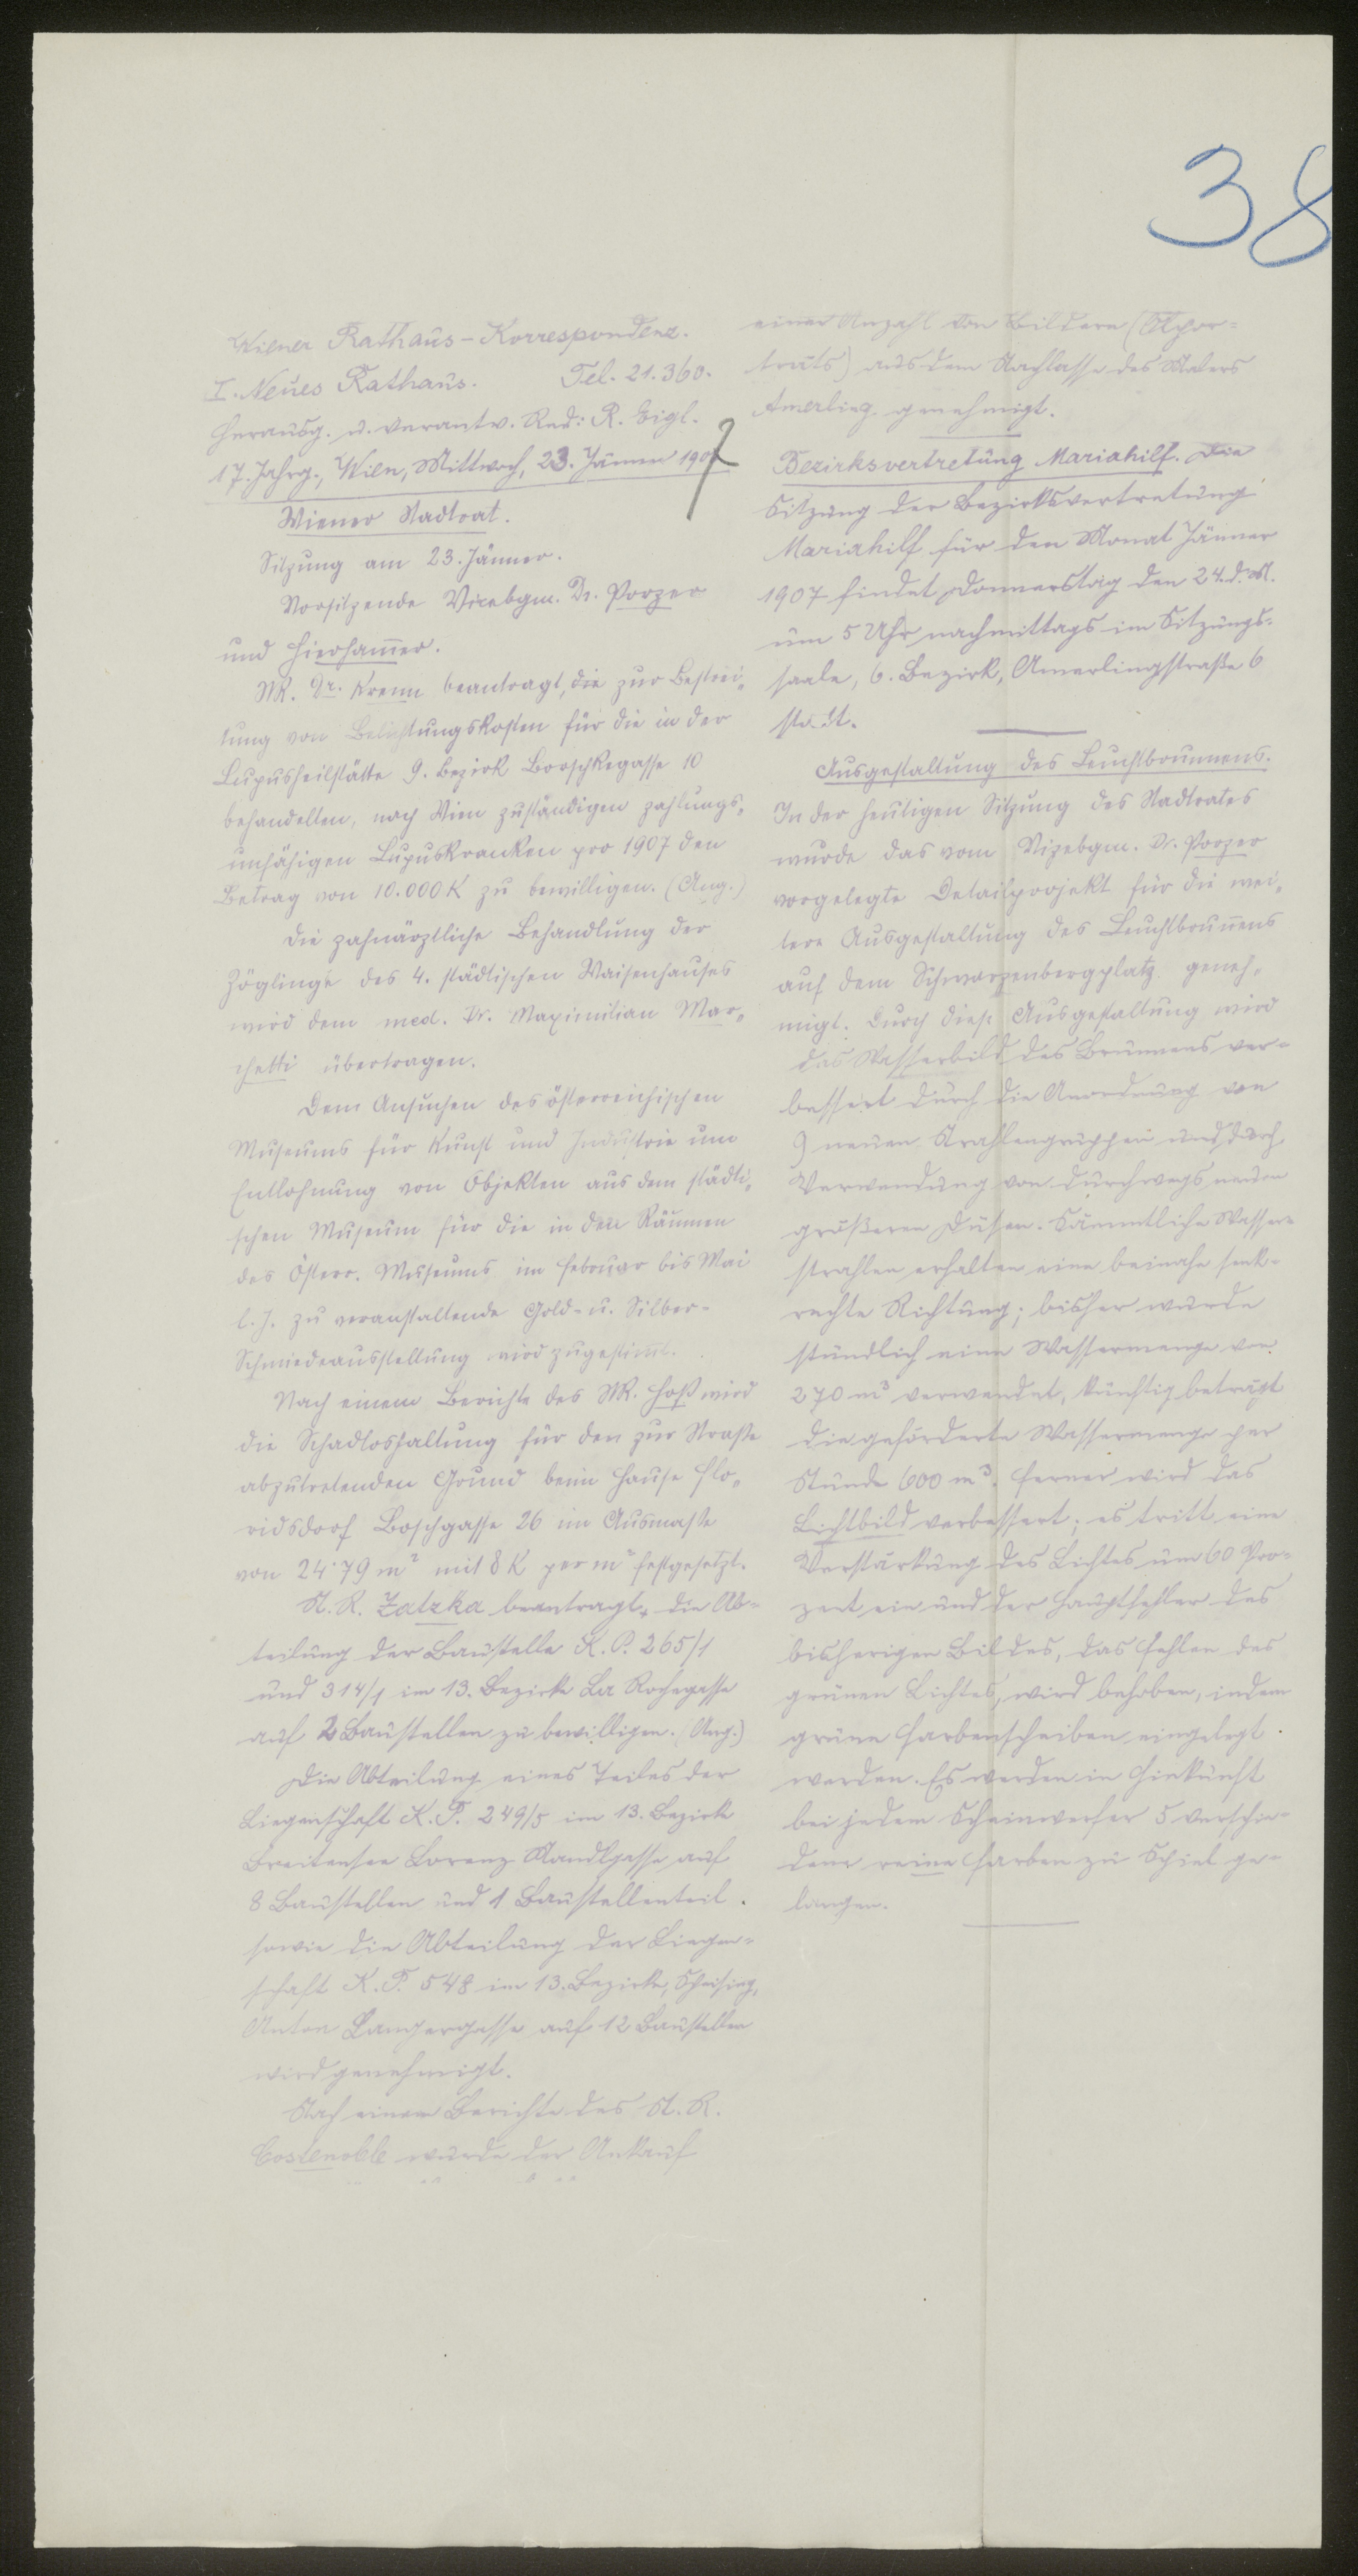 38
Wiener Rathaus-Korrespondenz.
I. Neues Rathaus. Tel. 21.360.
Herausg. u. verantw. Red: R. Eigl.
17. Jahrg., Wien, Mittwoch, 23. Jänner 1907
Wiener Stadtrat.
Sitzung am 23. Jänner.
Vorsitzende Vicebgm. Dr. Porzer
und Hierhammer.
StR. Dr. Krenn beantragt, die zur Bestrei-
tung von Belichtungskosten für die in der
Lupusheilstätte 9. Bezirk Borschkegasse 10
behandelten, nach Wien zuständigen zahlungs-
unfähigen Lupuskranken pro 1907 den
Betrag von 10.000 K zu bewilligen. (Ang.)
Die zahnärztliche Behandlung der
Zöglinge des 4. städtischen Waisenhauses
wird dem med. Dr. Maximilian Mar-
chetti übertragen.
Dem Ansuchen des österreichischen
Museums für Kunst und Industrie um
Entlehnung von Objekten aus dem städti-
schen Museum für die in den Räumen
des Österr. Museums im Februar bis Mai
l. J. zu veranstaltende Gold- u. Silber-
Schmiedeausstellung wird zugestimmt.
Nach einem Berichte des StR. Hoß wird
die Schadloshaltung für den zur Straße
abzutretenden Grund beim Hause Flo-
ridsdorf Boschgasse 26 im Ausmaße
von 24·79 m² mit 8 K per m² festgesetzt.
St. R. Zatzka beantragt, die Ab-
teilung der Baustelle K. P. 265/1
und 314/1 im 13. Bezirke La Rochegasse
auf 2 Baustellen zu bewilligen. (Ang.)
Die Abteilung eines Teiles der
Liegenschaft K. P. 249/5 im 13. Bezirke
Breitensee Lorenz Mandlgasse auf
8 Baustellen und 1 Baustellenteil
sowie die Abteilung der Liegen-
schaft K. P. 548 im 13. Bezirke, Speising,
Anton Langergasse auf 12 Baustellen
wird genehmigt.
Nach einem Berichte des St. R.
Costenoble wurde der Ankauf
einer Anzahl von Bildern (Ölpor-
träts) aus dem Nachlasse des Malers
Amerling genehmigt.
Bezirksvertretung Mariahilf. Die
Sitzung der Bezirksvertretung
Mariahilf für den Monat Jänner
1907 findet Donnerstag den 24. d. M.
um 5 Uhr nachmittags im Sitzungs-
saale, 6. Bezirk, Amerlingstraße 6
statt.
Ausgestaltung des Leuchtbrunnens.
In der heutigen Sitzung des Stadtrates
wurde das vom Vizebgm. Dr. Porzer
vorgelegte Detailprojekt für die wei-
tere Ausgestaltung des Leuchtbrunnens
auf dem Schwarzenbergplatz geneh-
migt. Durch diese Ausgestaltung wird
das Wasserbild des Brunnens ver-
bessert durch die Anordnung von
9 neuen Strahlengruppen und durch
Verwendung von durchwegs neuen
größeren Düsen. Sämmtliche Wasser-
strahlen erhalten eine beinahe senk-
rechte Richtung; bisher wurde
stündlich eine Wassermenge von
270 m³ verwendet, künftig beträgt
die geförderte Wassermenge per
Stunde 600 m³. Ferner wird das
Lichtbild verbessert; es tritt eine
Verstärkung des Lichtes um 60 Pro-
zent ein und der Hauptfehler des
bisherigen Bildes, das Fehlen des
grünen Lichtes, wird behoben, indem
grüne Farbenscheiben eingelegt
werden. Es werden in Hinkunft
bei jedem Scheinwerfer 5 verschie-
dene reine Farben zu Spiel ge-
langen.